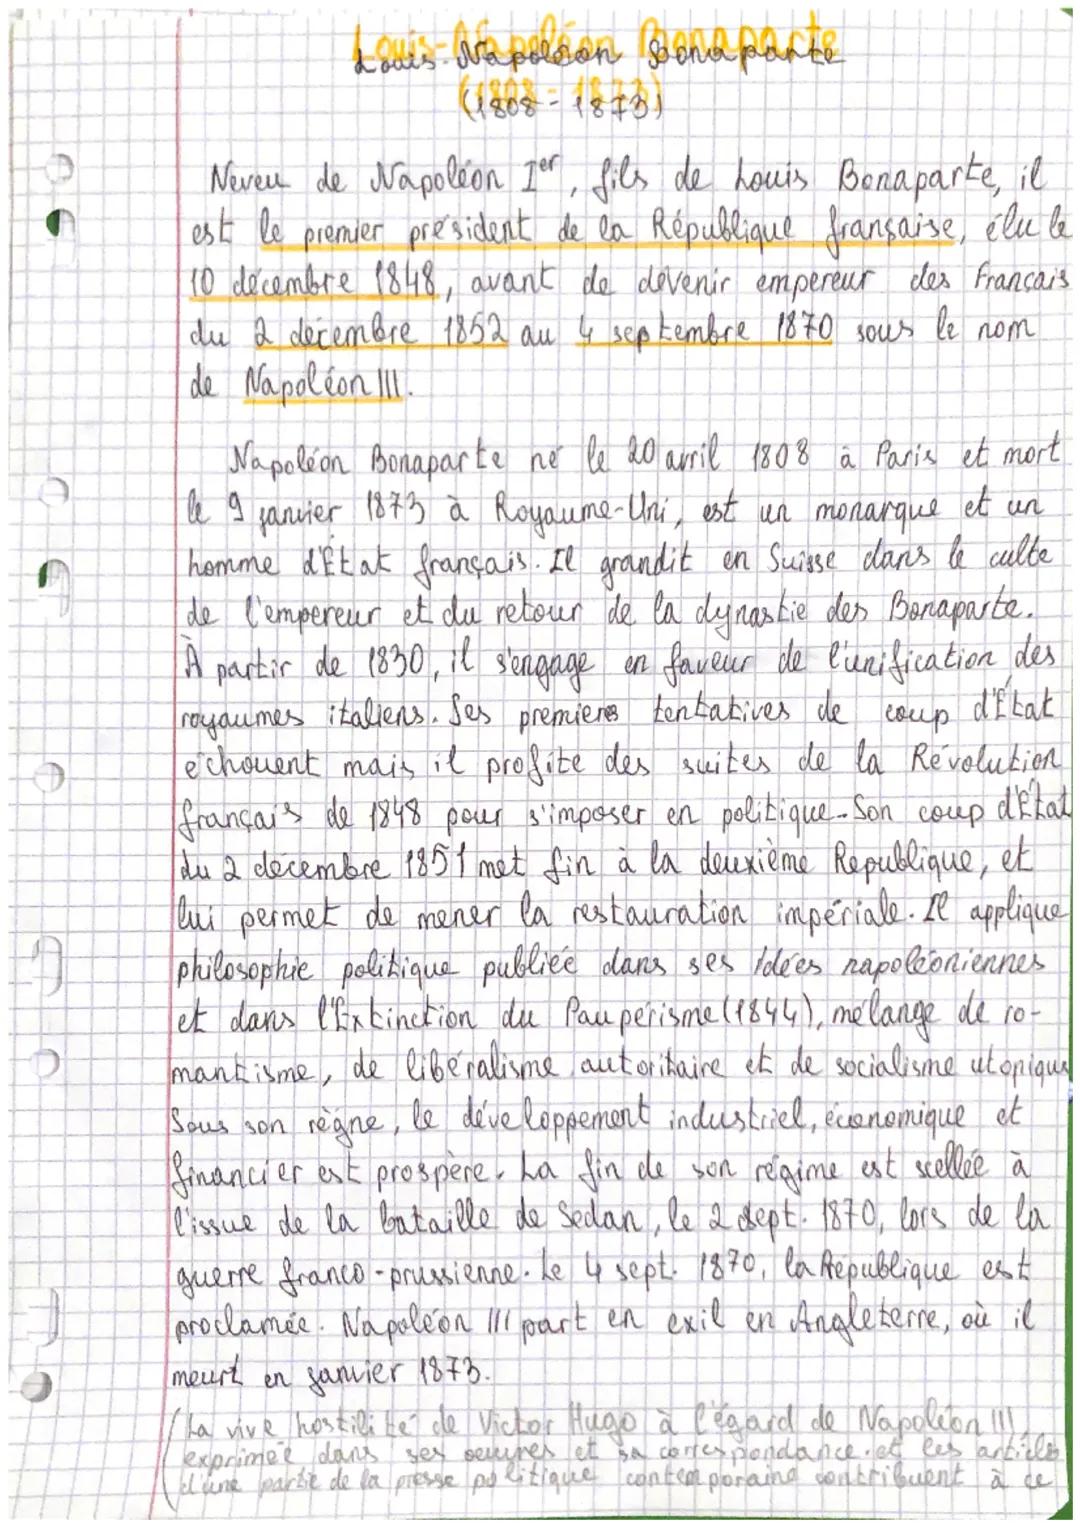 Louis-Napoléon Bonaparte
(1808 - 1873)
Neveu de Napoléon Ier, fils de Louis Bonaparte, il
est le premier président de la République française, élu le
10 décembre 1848, avant de devenir empereur des Français
du 2 décembre 1852 au 4 septembre 1870 sous le nom
de Napoléon III.
Napoléon Bonaparte né le 20 avril 1808 à Paris et mort
le 9 janvier 1873 à Royaume-Uni, est un monarque et un
homme d'État français. Il grandit en Suisse dans le culte
de l'empereur et du retour de la dynastie des Bonaparte.
À partir de 1830, il s'engage en faveur de l'unification des
royaumes italiens. Ses premieres tentatives de coup d'État
échouent mais il profite des suites de la Révolution
français de 1848 pour s'imposer en politique. Son coup d'État
du 2 décembre 1851 met fin à la deuxième République, et
lui permet de mener la restauration impériale. Il applique
philosophie politique publiée dans ses Idées napoléoniennes
et dans l'Extinction du Paupérisme (1844), mélange de ro-
mantisme, de libéralisme autoritaire et de socialisme utopique
Sous son règne, le développement industriel, économique et
financier est prospère. La fin de son régime est scellée à
l'issue de la bataille de Sedan, le 2 sept. 1870, lors de la
guerre franco-prussienne. Le 4 sept. 1870, la République est
proclamée. Napoléon III part en exil en Angleterre, où il
meurt en janvier 1873.
(La vive hostilité de Victor Hugo à l'égard de Napoléon III,
exprimée dans ses oeuvres et sa correspondance et les articles
d'une partie de la presse politique contemporaine contribuent à ce